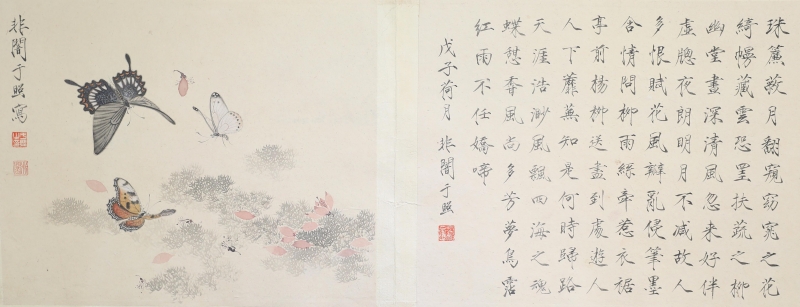 珠簾蔽月翻窺窈窕之花
綺幔藏雲恐罣扶疏之柳
幽堂晝深清風忽來好伴
虛牕夜朗明月不減故人
多恨賦花風瓣亂侵筆墨
含情問柳雨絲牽惹衣裾
亭前楊柳送盡到處遊人
山下蘼蕪知是何時歸路
天涯浩渺風飄四海之魂
蝶憩香風尚多芳夢鳥霑
紅雨不任嬌啼
戊子荷月 非闇于照
非闇于照寫